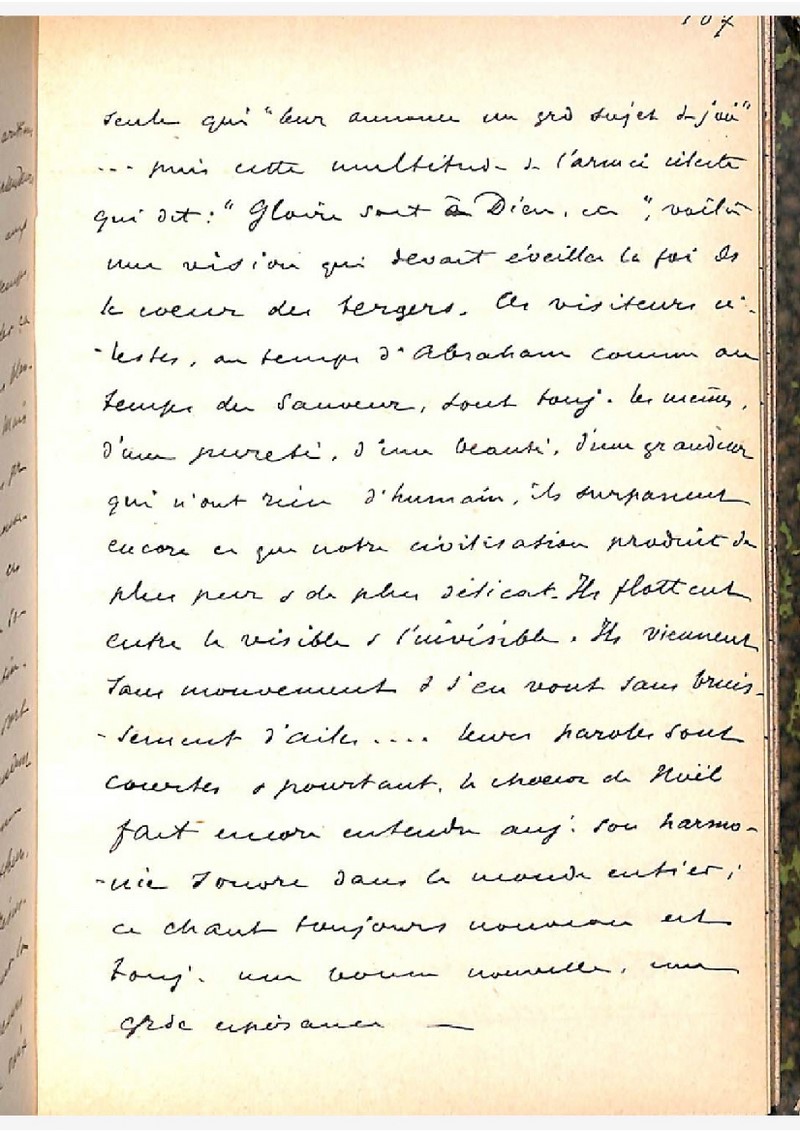 107
seule qui "leur annonce un grd sujet d joie"
... puis cette multitude d l'armée céleste
qui dit : "Gloire soit à Dieu, ", voilà
une vision qui devait éveiller la foi ds
le coeur des bergers. Ces visiteurs cé-
-lestes, au temps d'Abraham comme au
temps du Sauveur, sont touj. les mêmes,
d'une pureté, d'une beauté, d'une grandeur
qui n'ont rien d'humain, ils surpassent
encore ce que notre civilisation produit de
plus pur & de plus délicat. Ils flottent
entre le visible & l'invisible. Ils viennent
sans mouvement & s'en vont sans bruis-
-sement d'ailes .... leurs paroles sont
courtes & pourtant, le choeur de Noël
fait encore entendre auj. son harmo-
-nie sonore dans le monde entier ;
ce chant toujours nouveau est
touj. une bonne nouvelle, une
grde espérance —